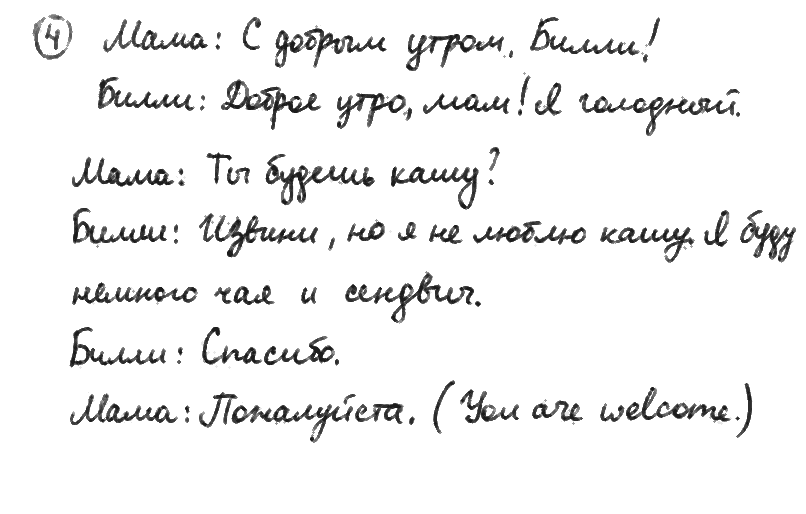 4 Мама: С добрым утром, Билли!
Билли: Доброе утро, мам! Я голодный.
Мама: Ты будешь кашу?
Билли: Извини, но я не люблю кашу. Я буду
немного чая и сендвич.
Билли: Спасибо.
Мама: Пожалуйста. (You are welcome.)